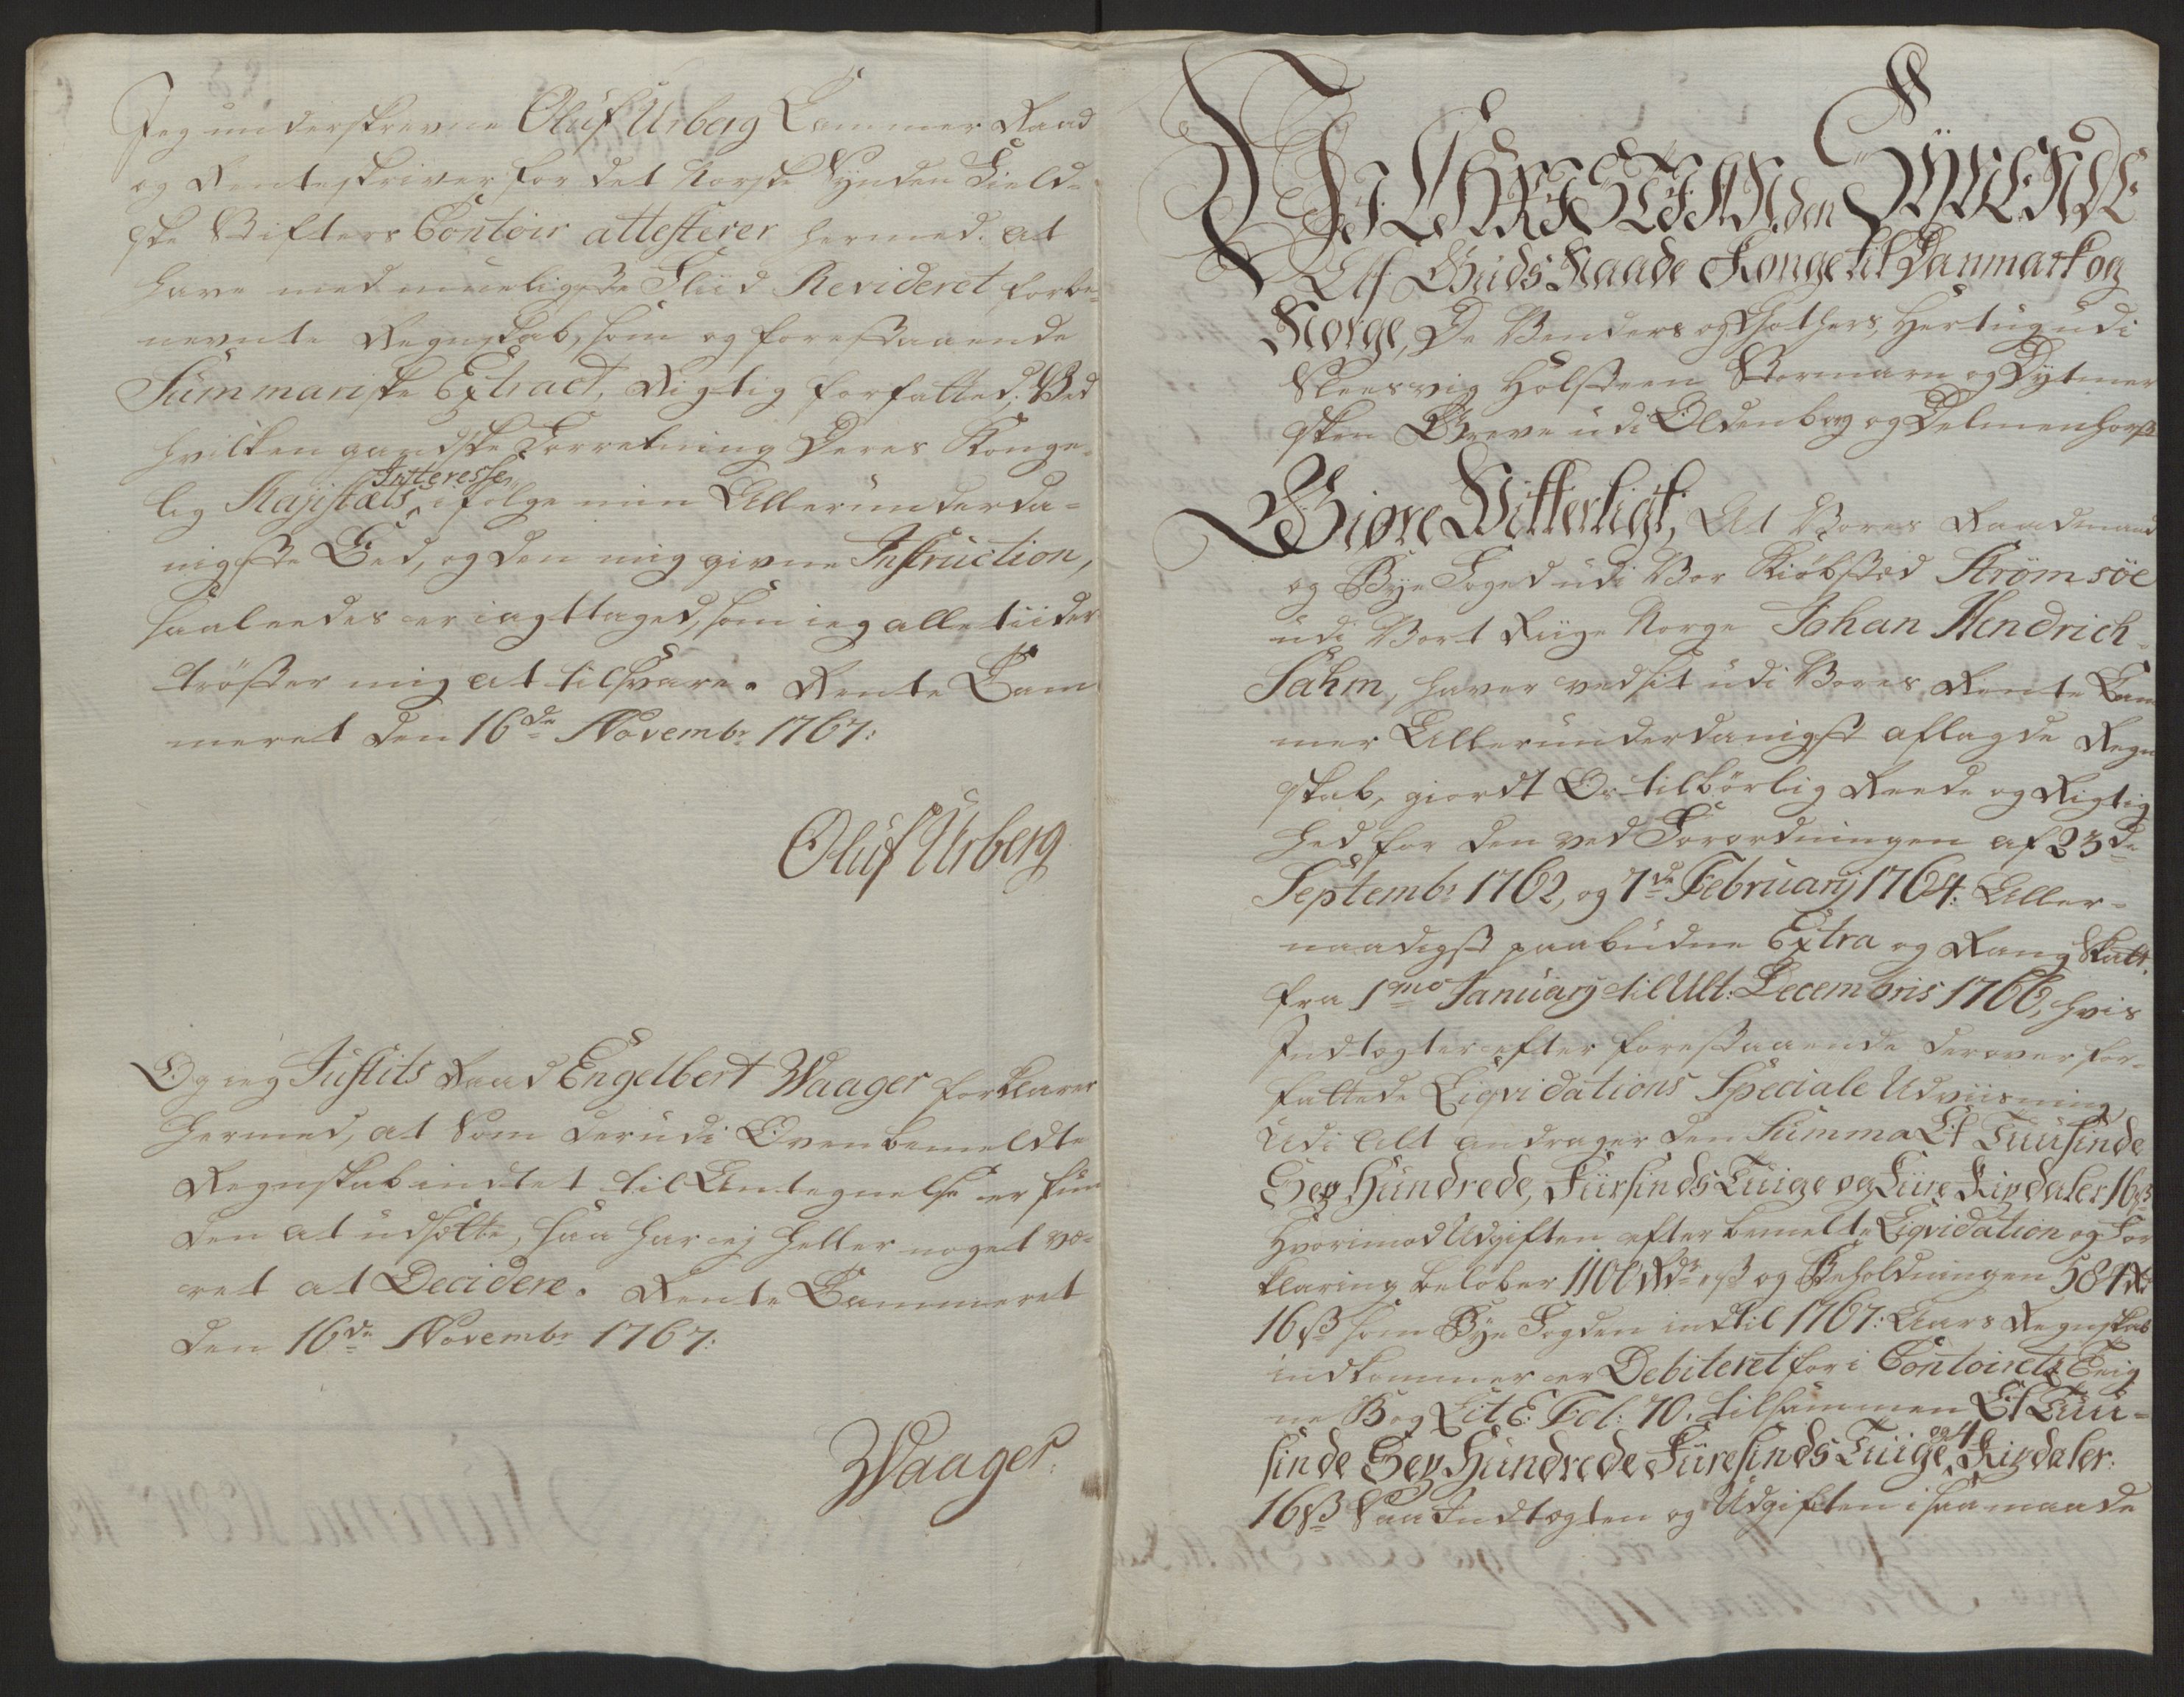 Jeg underskrevne Oluf Urberg Cammer Raad
og Renteskriver for det Norske Synden Field-
ske Stifters Contoir attesterer hermed. at
have med mueligste Fliid Revideret forbe-
nevnte Regnskab, som og forestaaende
Summariske Extract, Rigtig forfatted; Ved
hvilken gandske Forretning Deres Konge-
lig Majistæts Intteresse, i følge min Allerunderda-
nigste Eed, og den mig givne Instruction,
saaleedes er iagttaged, som ieg alletiider
trøster mig at tilsvare. Rente Cam
meret den 16de Novembr 1767:
Oluf Urberg
Og ieg Justits Raad Engelbert Waager forklarer
hermed, at Som derudi Ovenbemeldte
Regnskab indtet til Antegnelse er fun
den at udsætte, saa har ej heller noget væ-
ret at Decidere. Rente Cammeret
den 16de Novembr 1767:
Waager.
Vi Christian den Syvende
Af Guds Naade Konge til Danmark og
Norge, De Venders og Gothers, Hertug udi
Sleesvig Holsteen Stormarn og Dytmer
sken Greve udi Oldenborg og Delmenhorst
Giøre Vitterligt, At Vores Raadmand
og Bye Foged udi Vor Kiøbsted Strømsøe
udi Vort Riige Norge Johan Hendrich
Sahm, haver ved sit udi Vores Rente Cam
mer Allerunderdanigst aflagde Regn
skab, giordt Os tilbørlig Reede og Rigtig
hed for den ved Forordningen af 23de
Septembr 1762, og 7de February 1764: Aller-
naadigst paabudne Extra og Rang Skatt.
fra 1mo January til Ult: Decembris 1766, hvis
Indtægter efter forestaaende derover for-
fattede Liqvidations Speciale Udviisning
Udi Alt andrager den Summa Et Tuusinde
Sex Hundrede, Fiirsinds Tuige og Fiire Rixdaler 16 ß
Hvorimod Udgiften efter bemelte Liqvidation og For
klaring beløber 1100 Rdr ß og Beholdningen 584 Rd
16 ß som Bye Fogden ind til 1767: Aars Regnskab
indkommer er Debiteret for i Contoirets Teig
ne Bog Lit E: Fol: 70. tilsammen Et Tuu-
sinde Sex Hundrede Fiiresinds Tuige og 4 Rixdaler.
16 ß Saa Indtægten og Udgiften i saa maade